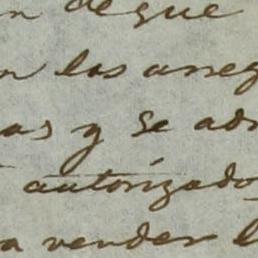 n de que
n los arreg
as y se adm
autorizado
a vender l